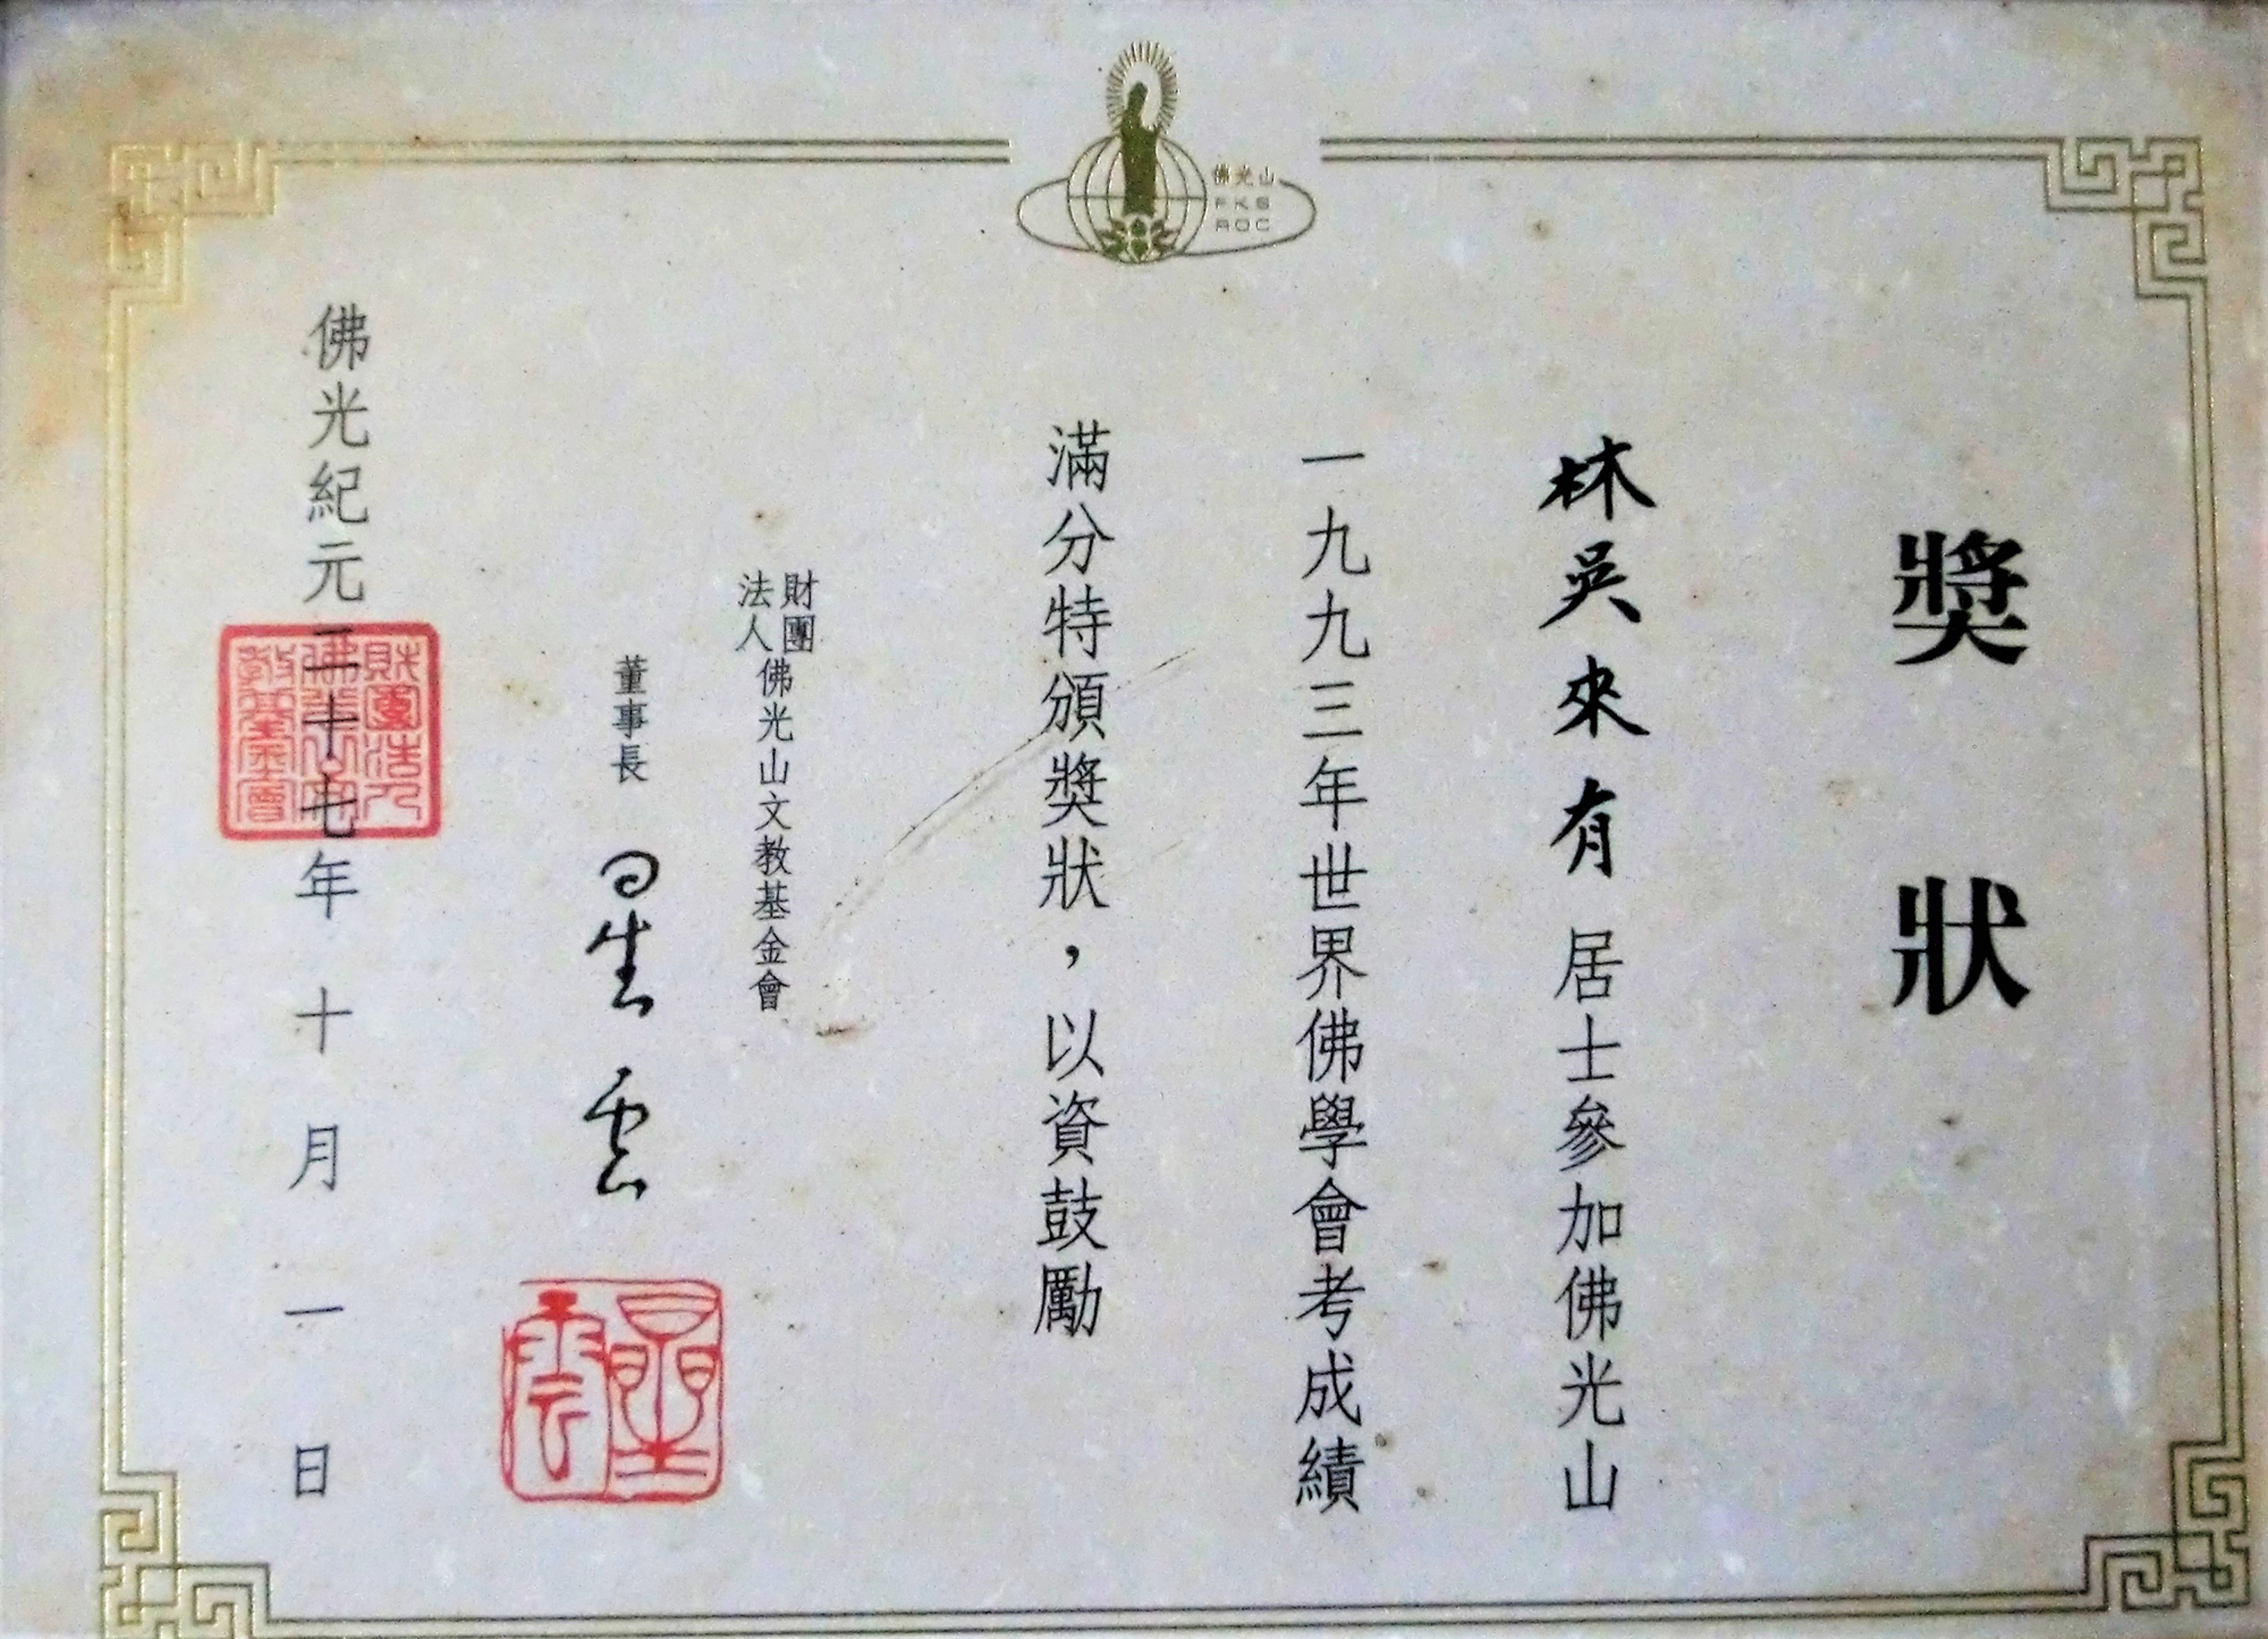 佛光山
FKS
ROC
獎狀
林吳來有居士參加佛光山
一九九三年世界佛學會考成績
滿分特頒獎狀，以資鼓勵
財團法人佛光山文教基金會
董事長 星雲
星雲
佛光紀元二十七年十月一日